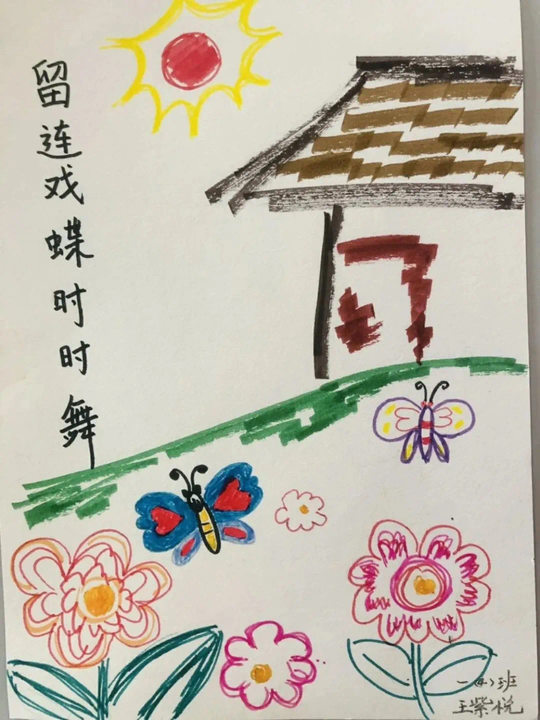 留连戏蝶时时舞
一(4)班
王紫悦